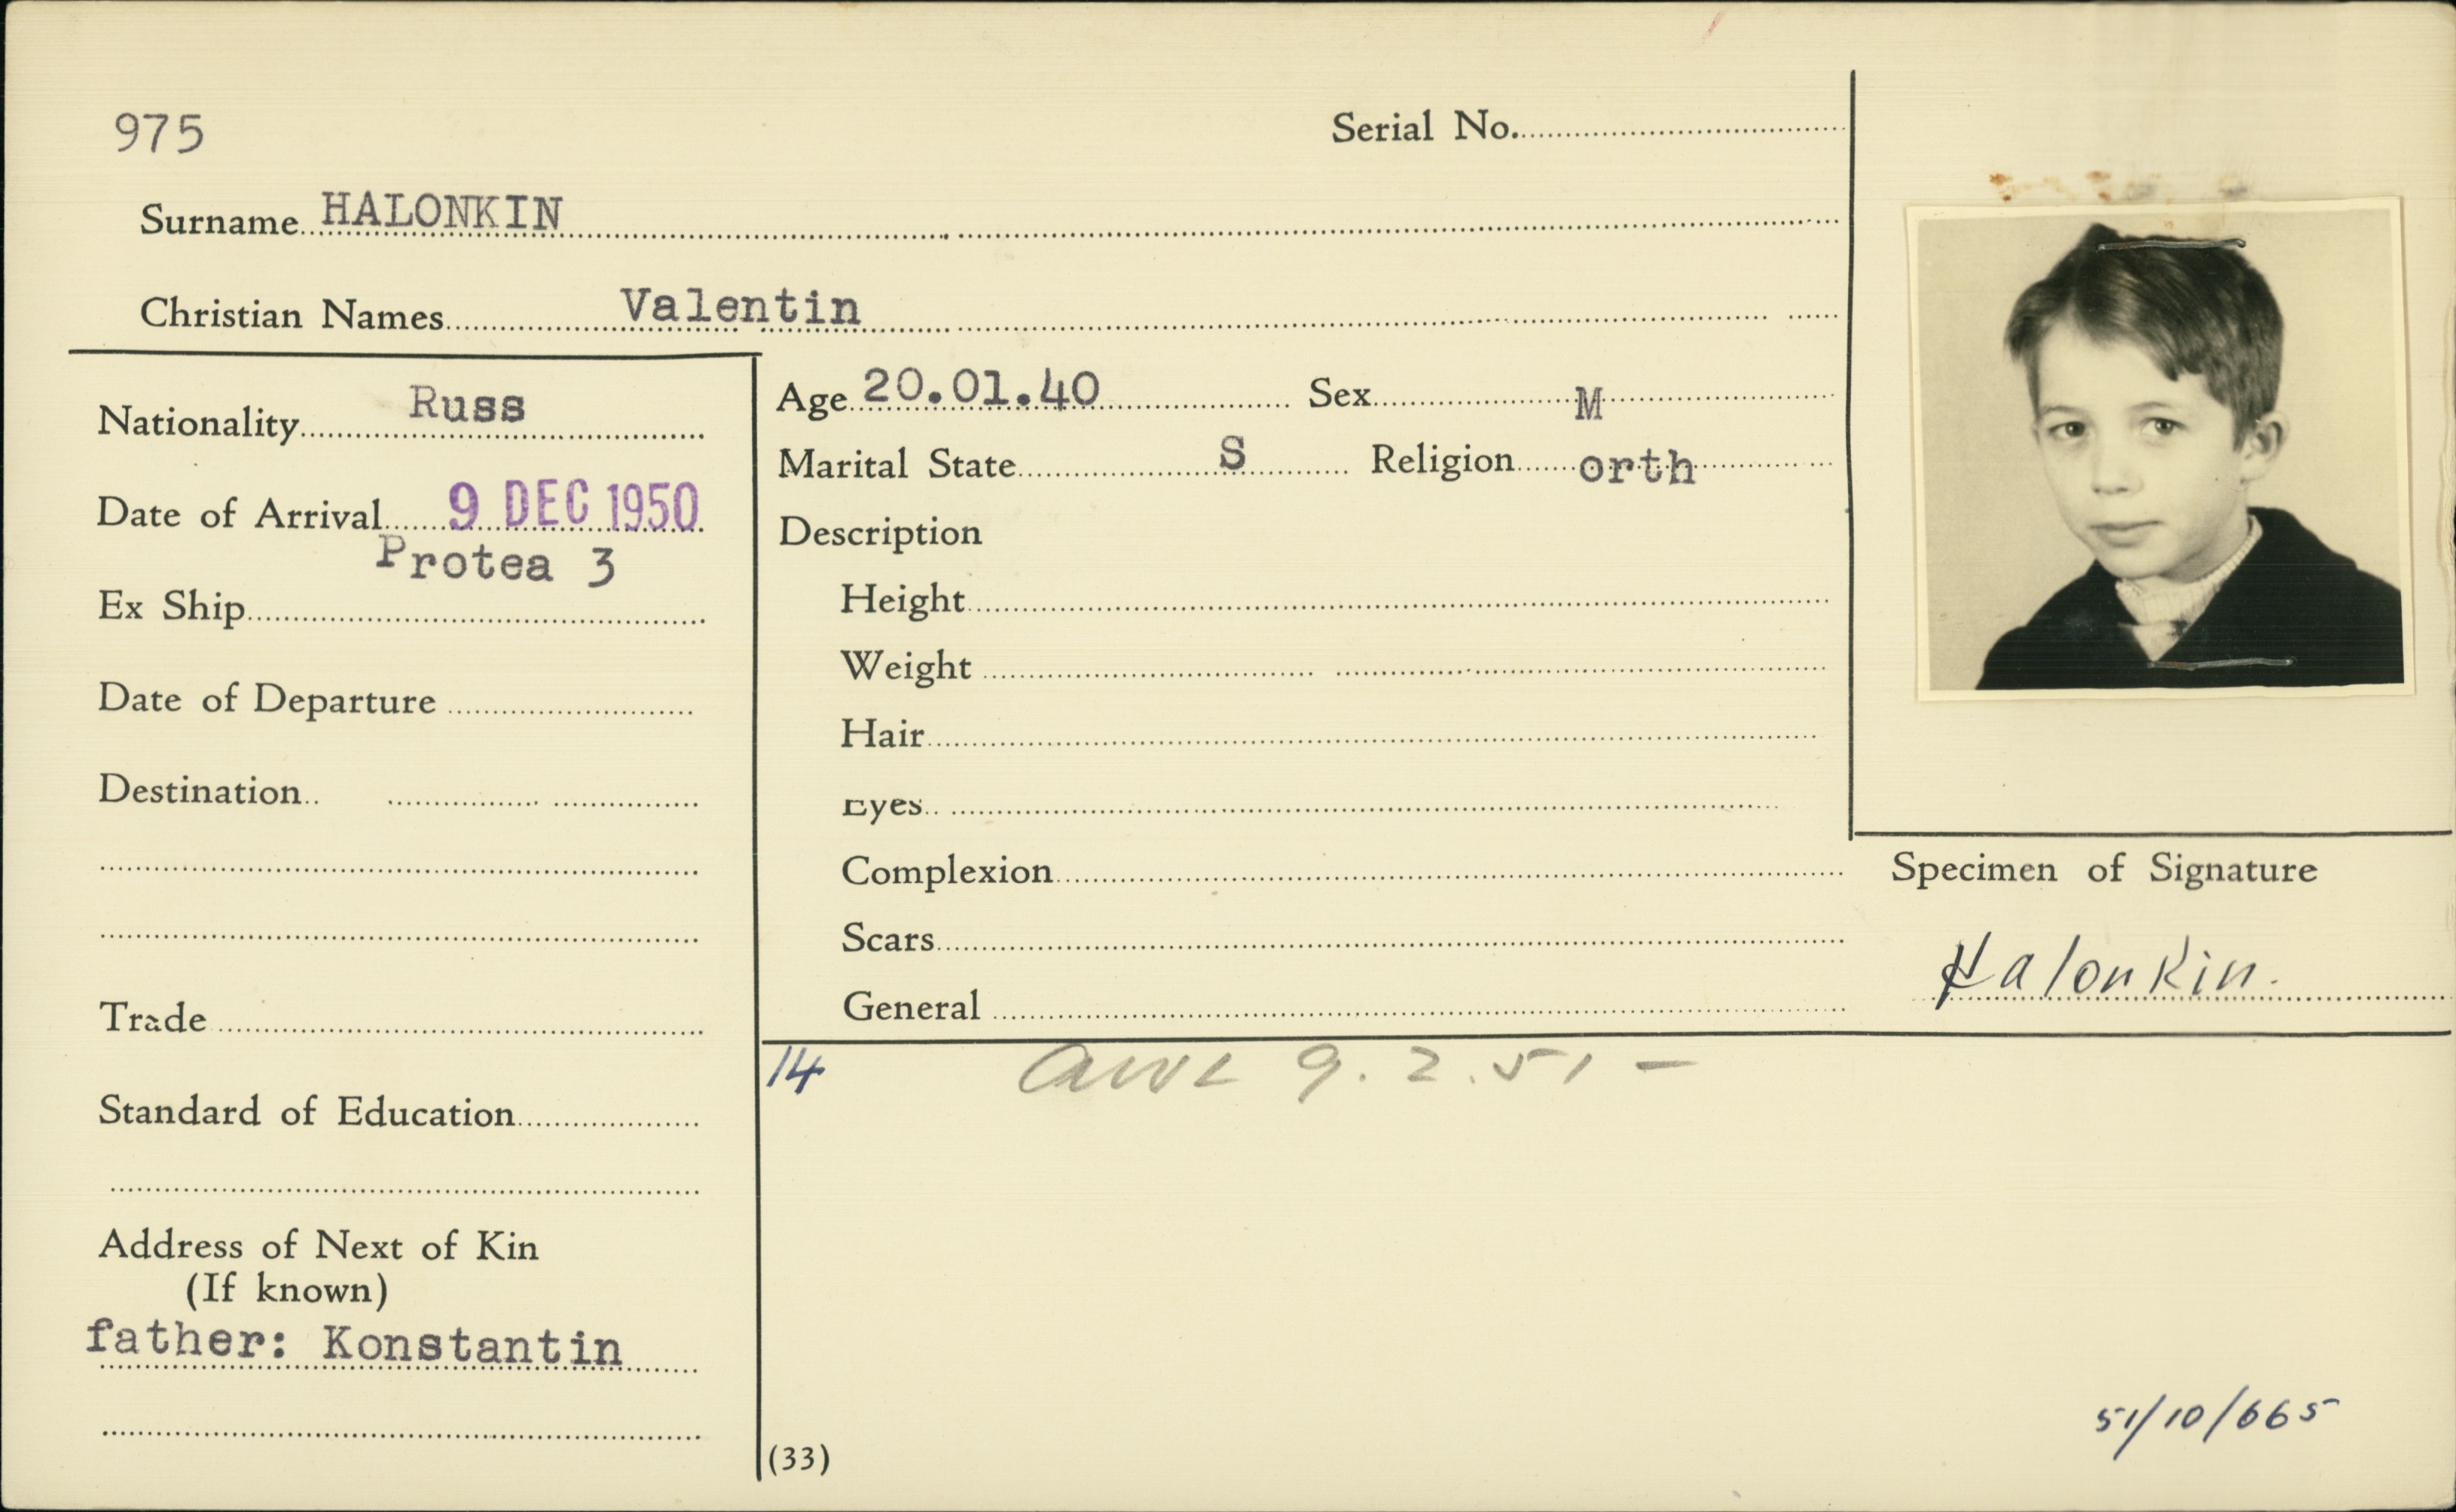 975
Serial No.
Surname HALONKIN
Christian Names Valentin
Nationality Russ
Date of Arrival 9 DEC 1950
Protea 3
Ex Ship
Date of Departure
Destination
Trade
Standard of Education
Address of Next of Kin
(If known)
father: Konstantin
Age 20.01.40 Sex M
Marital State S Religion orth
Description
Height
Weight
Hair
Eyes
Complexion
Scars
General
Specimen of Signature
Halonkin.
14 AWL 9.2.51 -
51/10/665
(33)